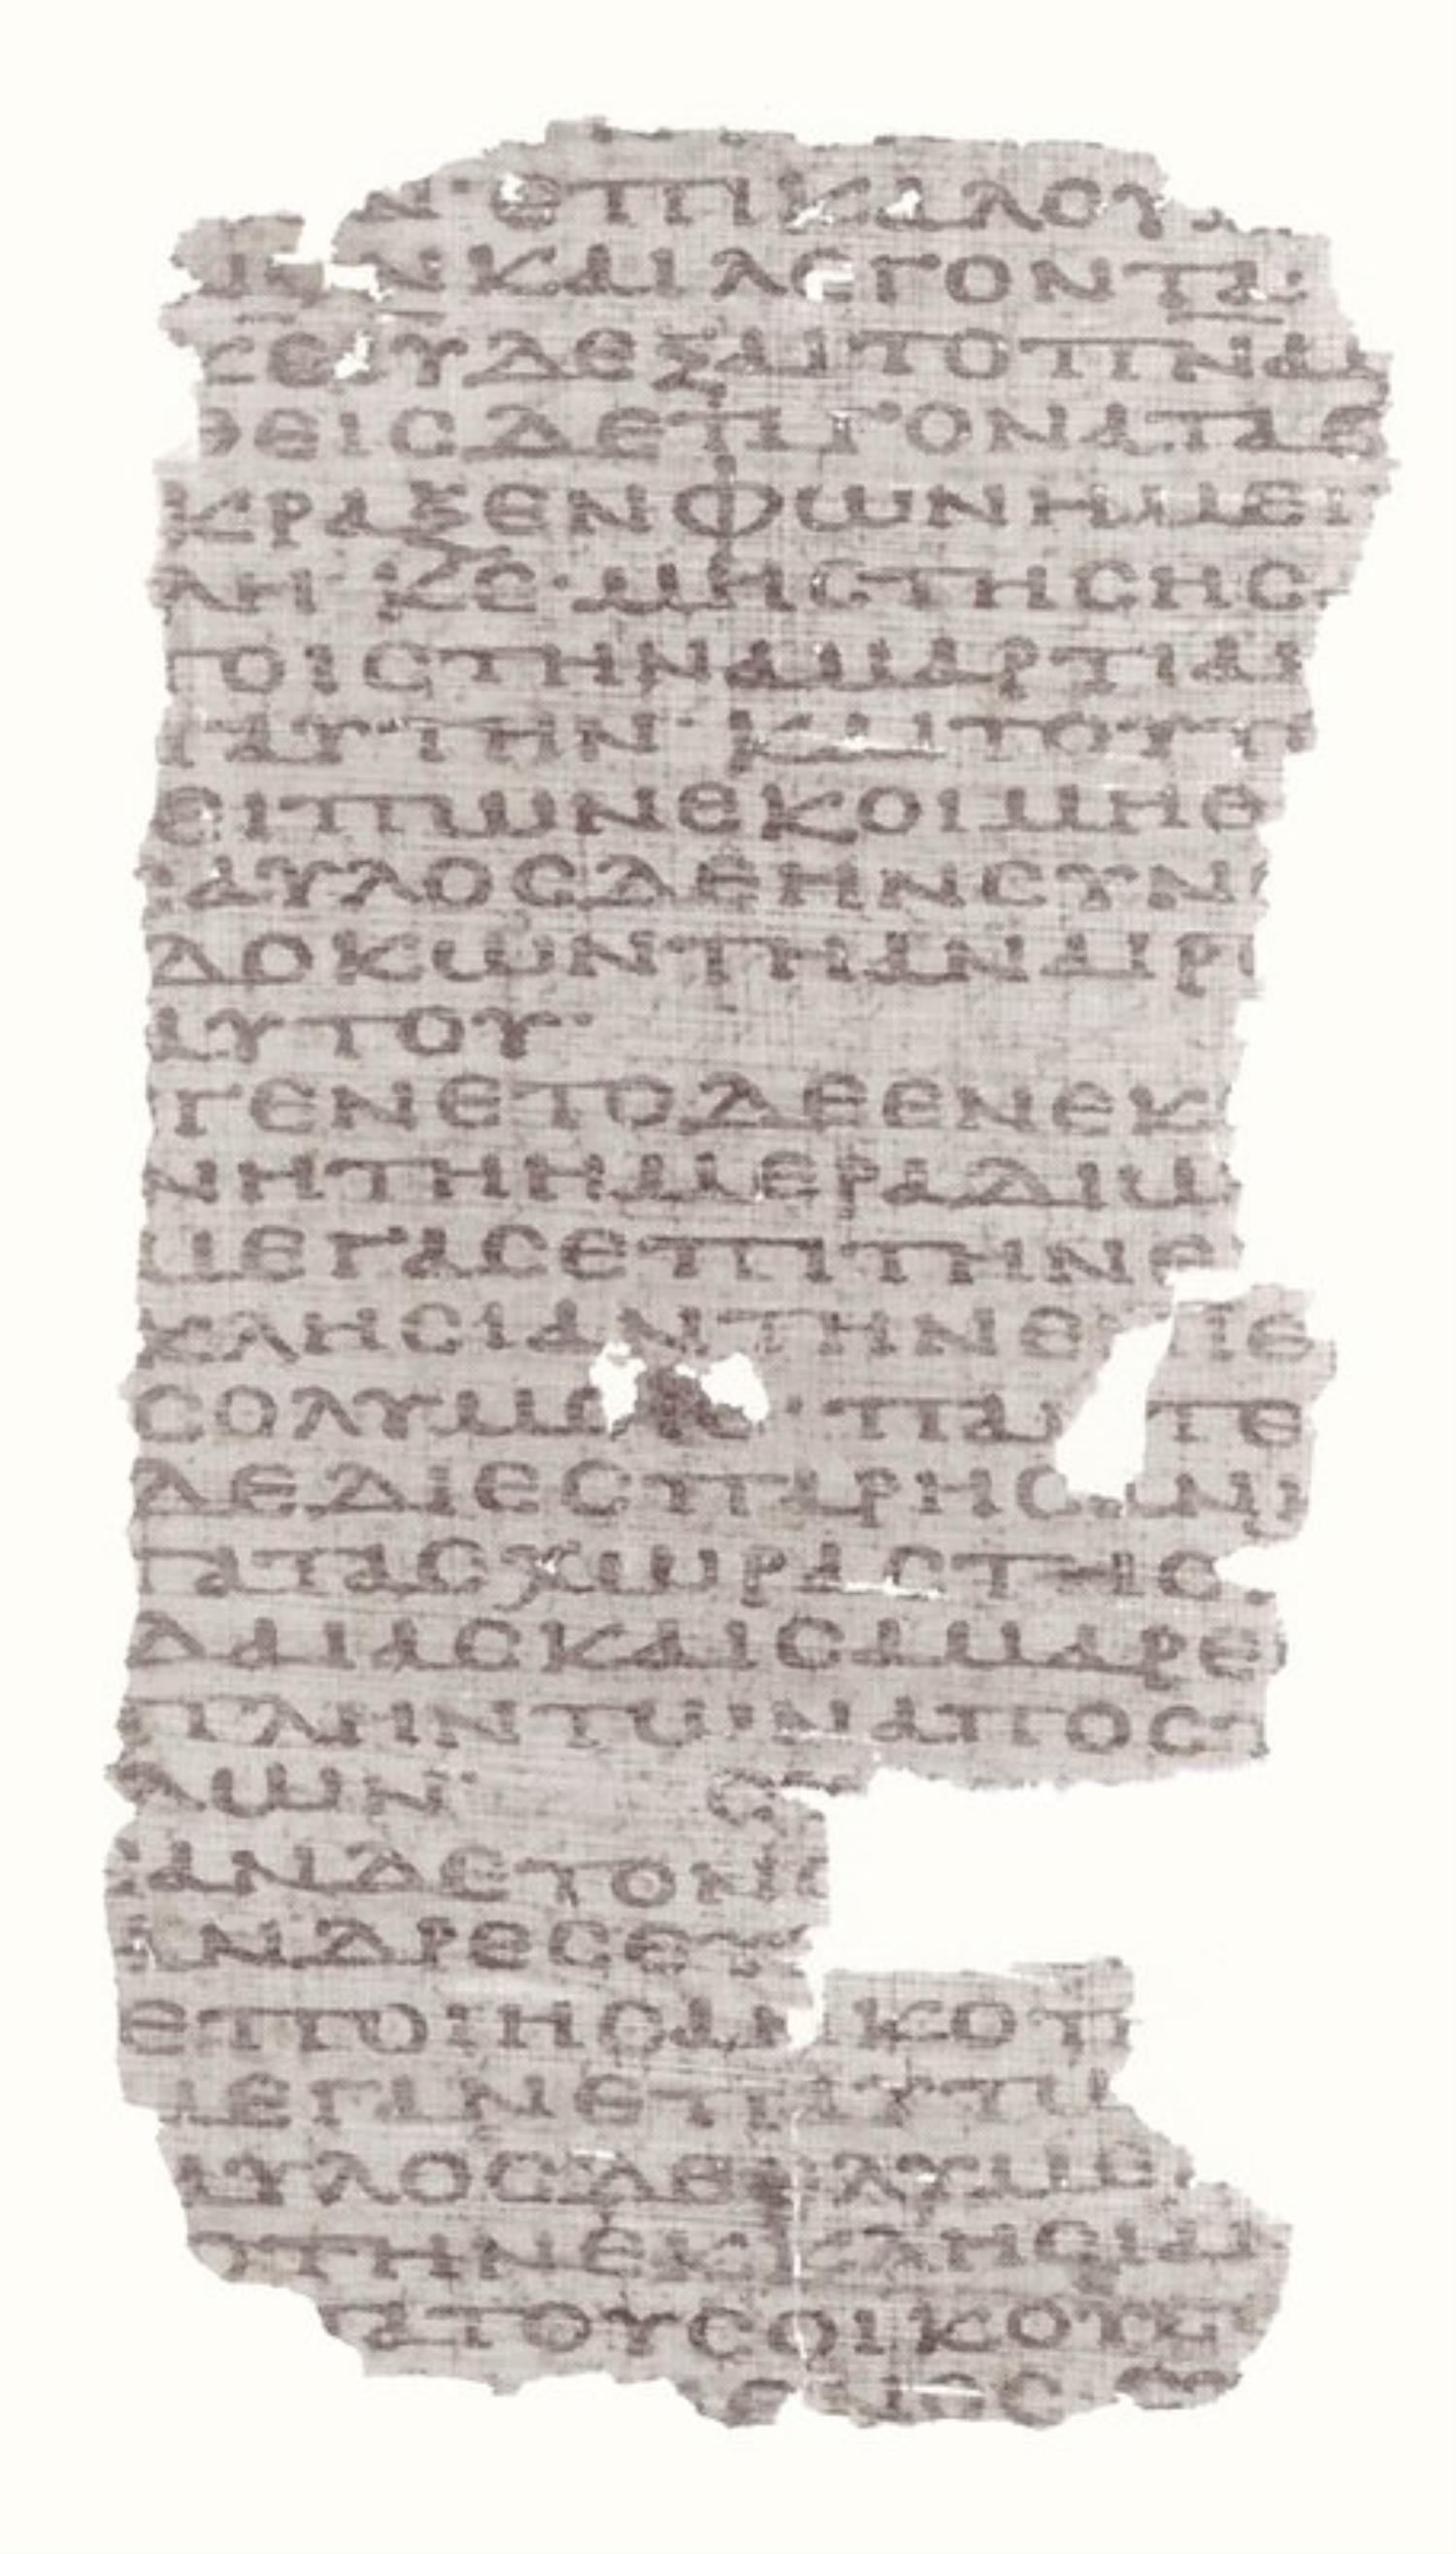 Ν· ΕΠΙΚΑΛΟΥ
ΟΝ ΚΑΙ ΛΕΓΟΝΤΑ
ΚΕ ΙΥ ΔΕΞΑΙ ΤΟ ΠΝΑ
ΘΕΙΣ ΔΕ ΤΑ ΓΟΝΑΤΑ Ε
ΚΡΑΞΕΝ ΦΩΝΗ ΜΕΓ
ΛΗ· ΚΕ· ΜΗ ΣΤΗΣΗΣ
ΤΟΙΣ ΤΗΝ ΑΜΑΡΤΙΑΝ
ΤΑΥΤΗΝ· ΚΑΙ ΤΟΥΤ
ΕΙΠΩΝ ΕΚΟΙΜΗΘ
ΑΥΛΟΣ ΔΕ ΗΝ ΣΥΝ
ΔΟΚΩΝ ΤΗ ΑΝΑΙΡ
ΑΥΤΟΥ·
ΓΕΝΕΤΟ ΔΕ ΕΝ ΕΚ
ΝΗ ΤΗ ΗΜΕΡΑ ΔΙΩ
ΜΕΓΑΣ ΕΠΙ ΤΗΝ Ε
ΚΛΗΣΙΑΝ ΤΗΝ ΕΝ ΙΕ
ΣΟΛΥΜΟΙΣ· ΠΑΝΤΕ
ΔΕ ΔΙΕΣΠΑΡΗΣΑΝ
ΚΑΤΑ ΤΑΣ ΧΩΡΑΣ ΤΗΣ
ΔΑΙΑΣ ΚΑΙ ΣΑΜΑΡΕ
ΠΛΗΝ ΤΩΝ ΑΠΟΣ
ΛΩΝ· Σ
ΣΑΝ ΔΕ ΤΟΝ
ΑΝΔΡΕΣ Ε
ΕΠΟΙΗΣΑΝ ΚΟΠ
ΜΕΓΑΝ ΕΠ ΑΥΤΩ
ΑΥΛΟΣ ΔΕ ΕΛΥΜΕ
ΤΟ ΤΗΝ ΕΚΚΛΗΣΙΑΝ
ΚΑΤΑ ΤΟΥΣ ΟΙΚΟΥΣ
ΕΝΟΣ